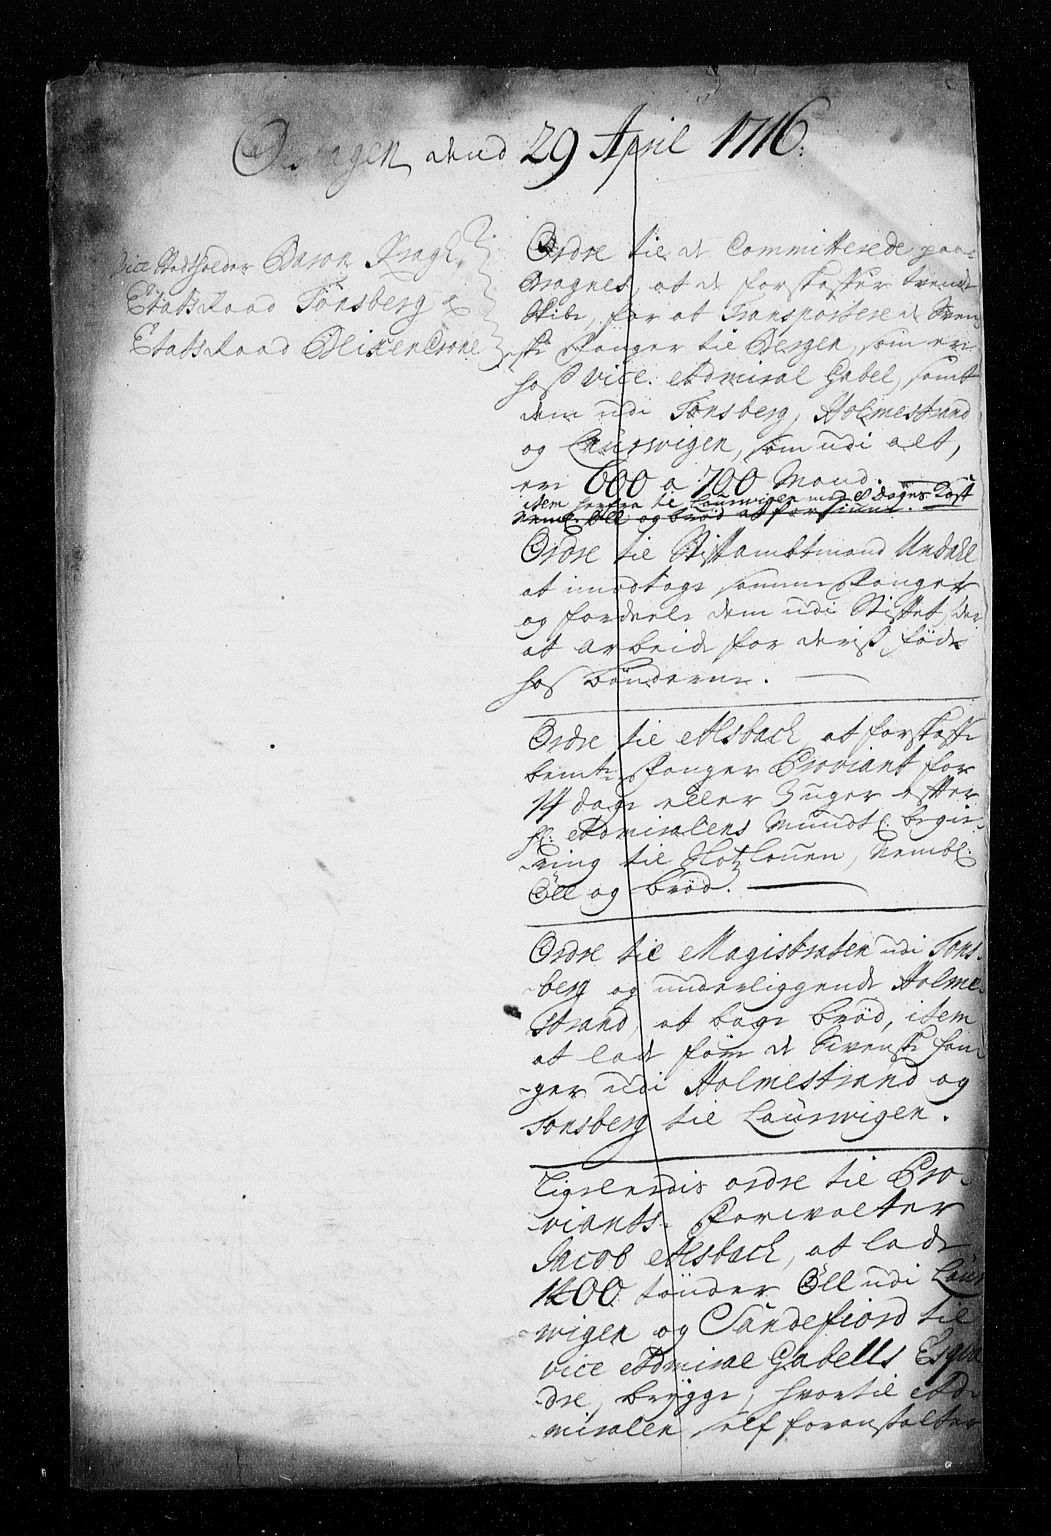 Onsdagen dend 29 April 1716.
Vice Stadtholder Baron Kragh,
Etatsraad Tonsberg &
Etatsraad BlixenCrone
Ordre til de Committerede paa
Bragnes, at de forskaffer trende
Skibe, for at Transportere de Sven-
ske Fanger til Bergen, som er
hoss Vice. Admiral Gabel, samt
dem udi Tonsberg, Holmestrand
og Laurwigen, som udi alt,
er 600 a 700 Mand.
item herfra til Laurwigen med 8 Dages Kost
Neml. Öll og brød at forsiune.
Ordre til Stiftambtmand Undahl
at imodtage samme Fanger
og fordeele dem udi Stiftet, der
at arbeide for deris føde
hos bønderne.
Ordre til Alsback at forskaffe
bemte Fanger Proviant for
14 dage eller 3 uger efter
hr. Admiralens Mundtl. begie-
ring til Slotzlouen, Nembl.
Öll og brød.
Ordre til Magistraten udi Tons-
berg og underliggende Holme-
strand, at bage brød, item
at lade føre de Svenske fan-
ger udi Holmestrand og
Tonsberg til Laurwigen.
Ligeledis ordre til Pro-
viants-Forvalter
Jacob Alsback, at lade
1400 tönder Öll udi Laur
wigen og Sandefiord til
vice Admiral Gabells Esqva
dre, brygge, hvortil Ad-
miralen self foranstalter